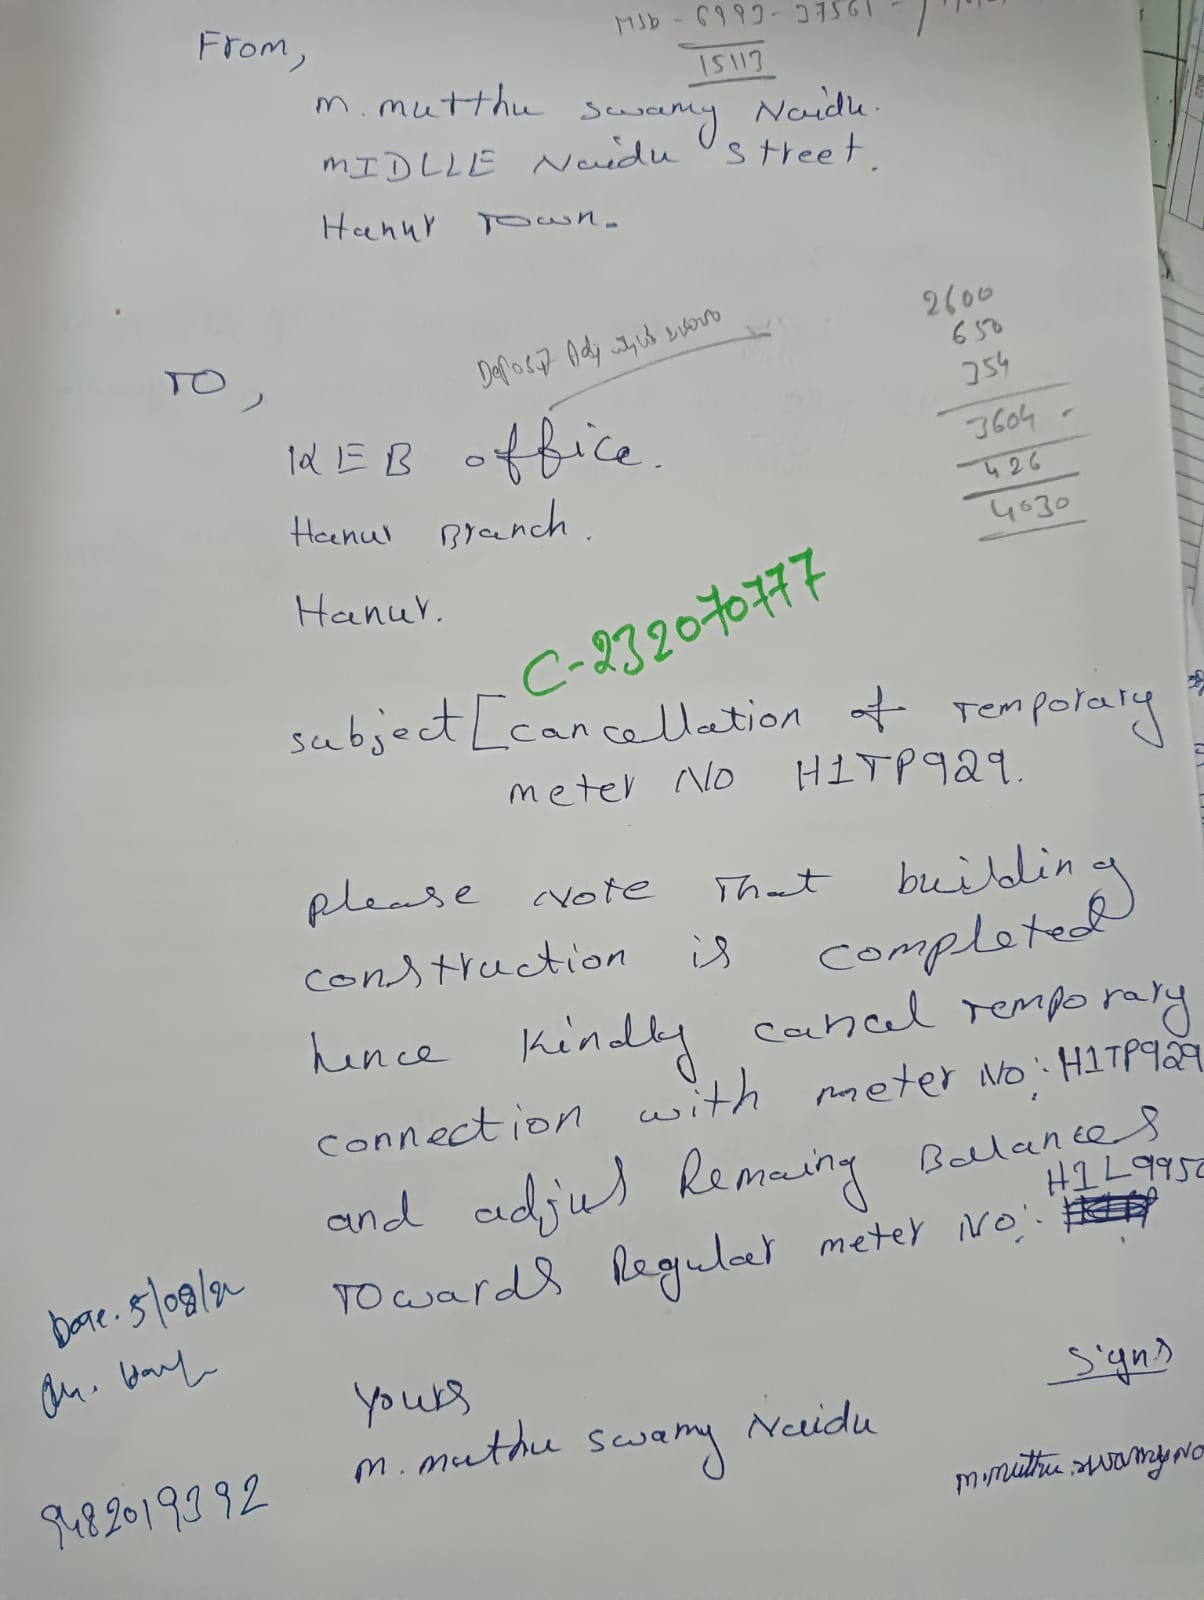 MSD - 6993 - 37561 -
15113
From,
M. Mutthu Swamy Naidu.
MIDLLE Naidu Street.
Hanur Town.
2600
650
354
3604
426
4030
Deposit Adj
TO,
KEB office.
Hanur Branch.
Hanur.
C-232070777
subject [cancellation of Temporary
meter No H1TP929.
please Note That building
construction is completed
hence kindly cancel Temporary
connection with meter No: H1TP929
and adjust Remaing Ballances
H1L995
TOwards Regular meter No:
Date. 5/08/2
Yours
Signs
M. Muthu Swamy Naidu
M. Muthu Swamy Na
9482019392